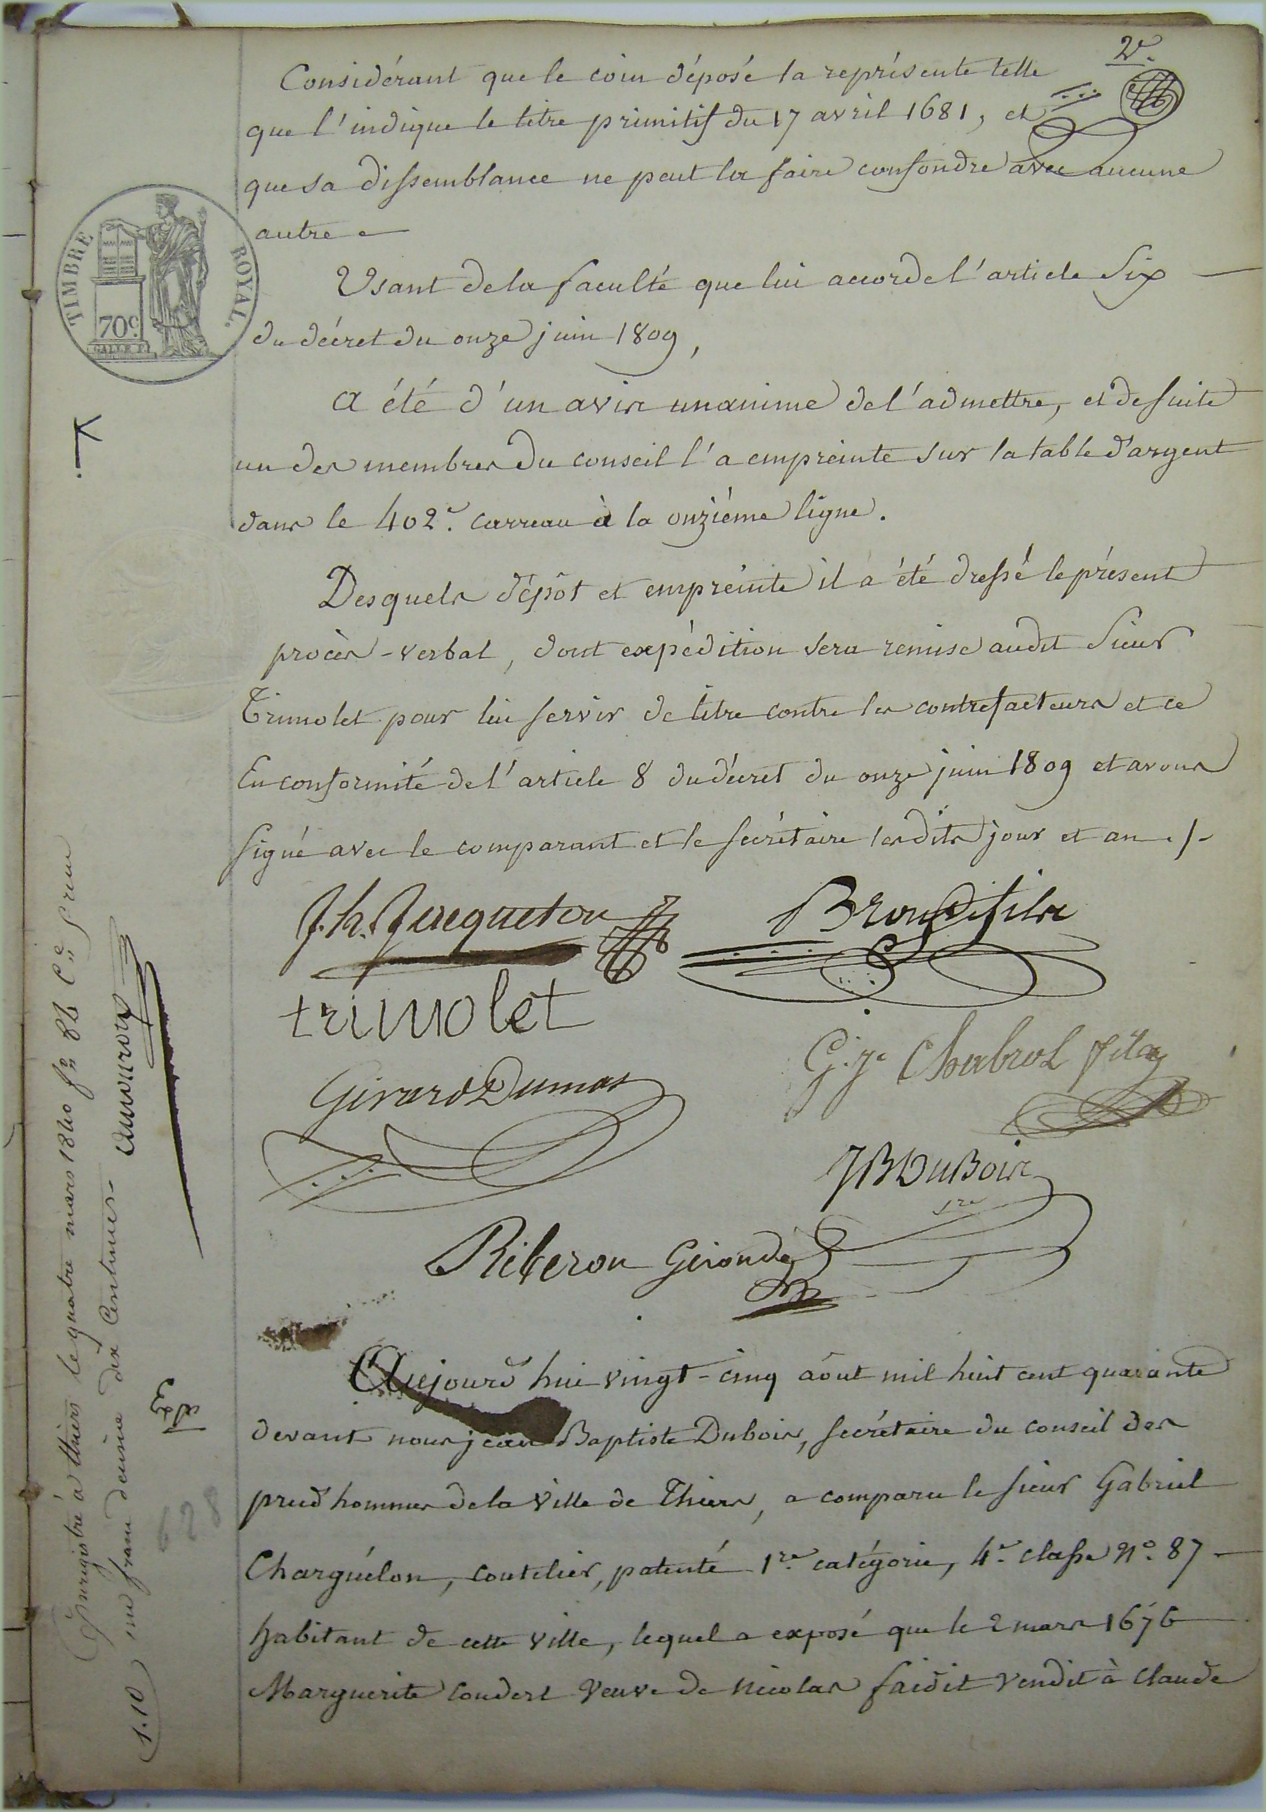 2e.
Considérant que le coin déposé la représente telle
que l'indique le titre primitif du 17 avril 1681, et
que sa dissemblance ne peut la faire confondre avec aucune
autre
Usant de la faculté que lui accorde l'article Six
du décret du onze juin 1809,
a été d'un avis unanime de l'admettre, et de suite
un des membres du conseil l'a empreinte sur la table d'argent
dans le 402e. carreau à la onzième ligne.
Desquels dépôt et empreinte il a été dressé le présent
procès-verbal, dont expédition sera remise audit Sieur
Trimolet pour lui servir de titre contre les contrefacteurs et ce
En conformité de l'article 8 du décret du onze juin 1809 et avons
signé avec le comparant et le secrétaire lesdits jour et an ./.
TIMBRE ROYAL.
70c.
J.h. Jacqueton
Brou fils
trimolet
G.ye Chabrol fils
Girard Dumas
JB Dubois
sre
Riberon Gironde
Aujourd'hui vingt-cinq août mil huit cent quarante
devant nous jean Baptiste Dubois, secrétaire du conseil des
prud'hommes de la ville de Thiers, a comparu le sieur Gabriel
Charguélon, coutelier, patenté 1re. catégorie, 4e. classe No. 87
habitant de cette ville, lequel a exposé que le 2 mars 1676
Marguerite Coudert Veuve de Nicolas faidit Vendit à Claude
Enregistré à thiers le quatre mars 1840 fo 86
un franc decime dix Centimes
1.10
Exp
628